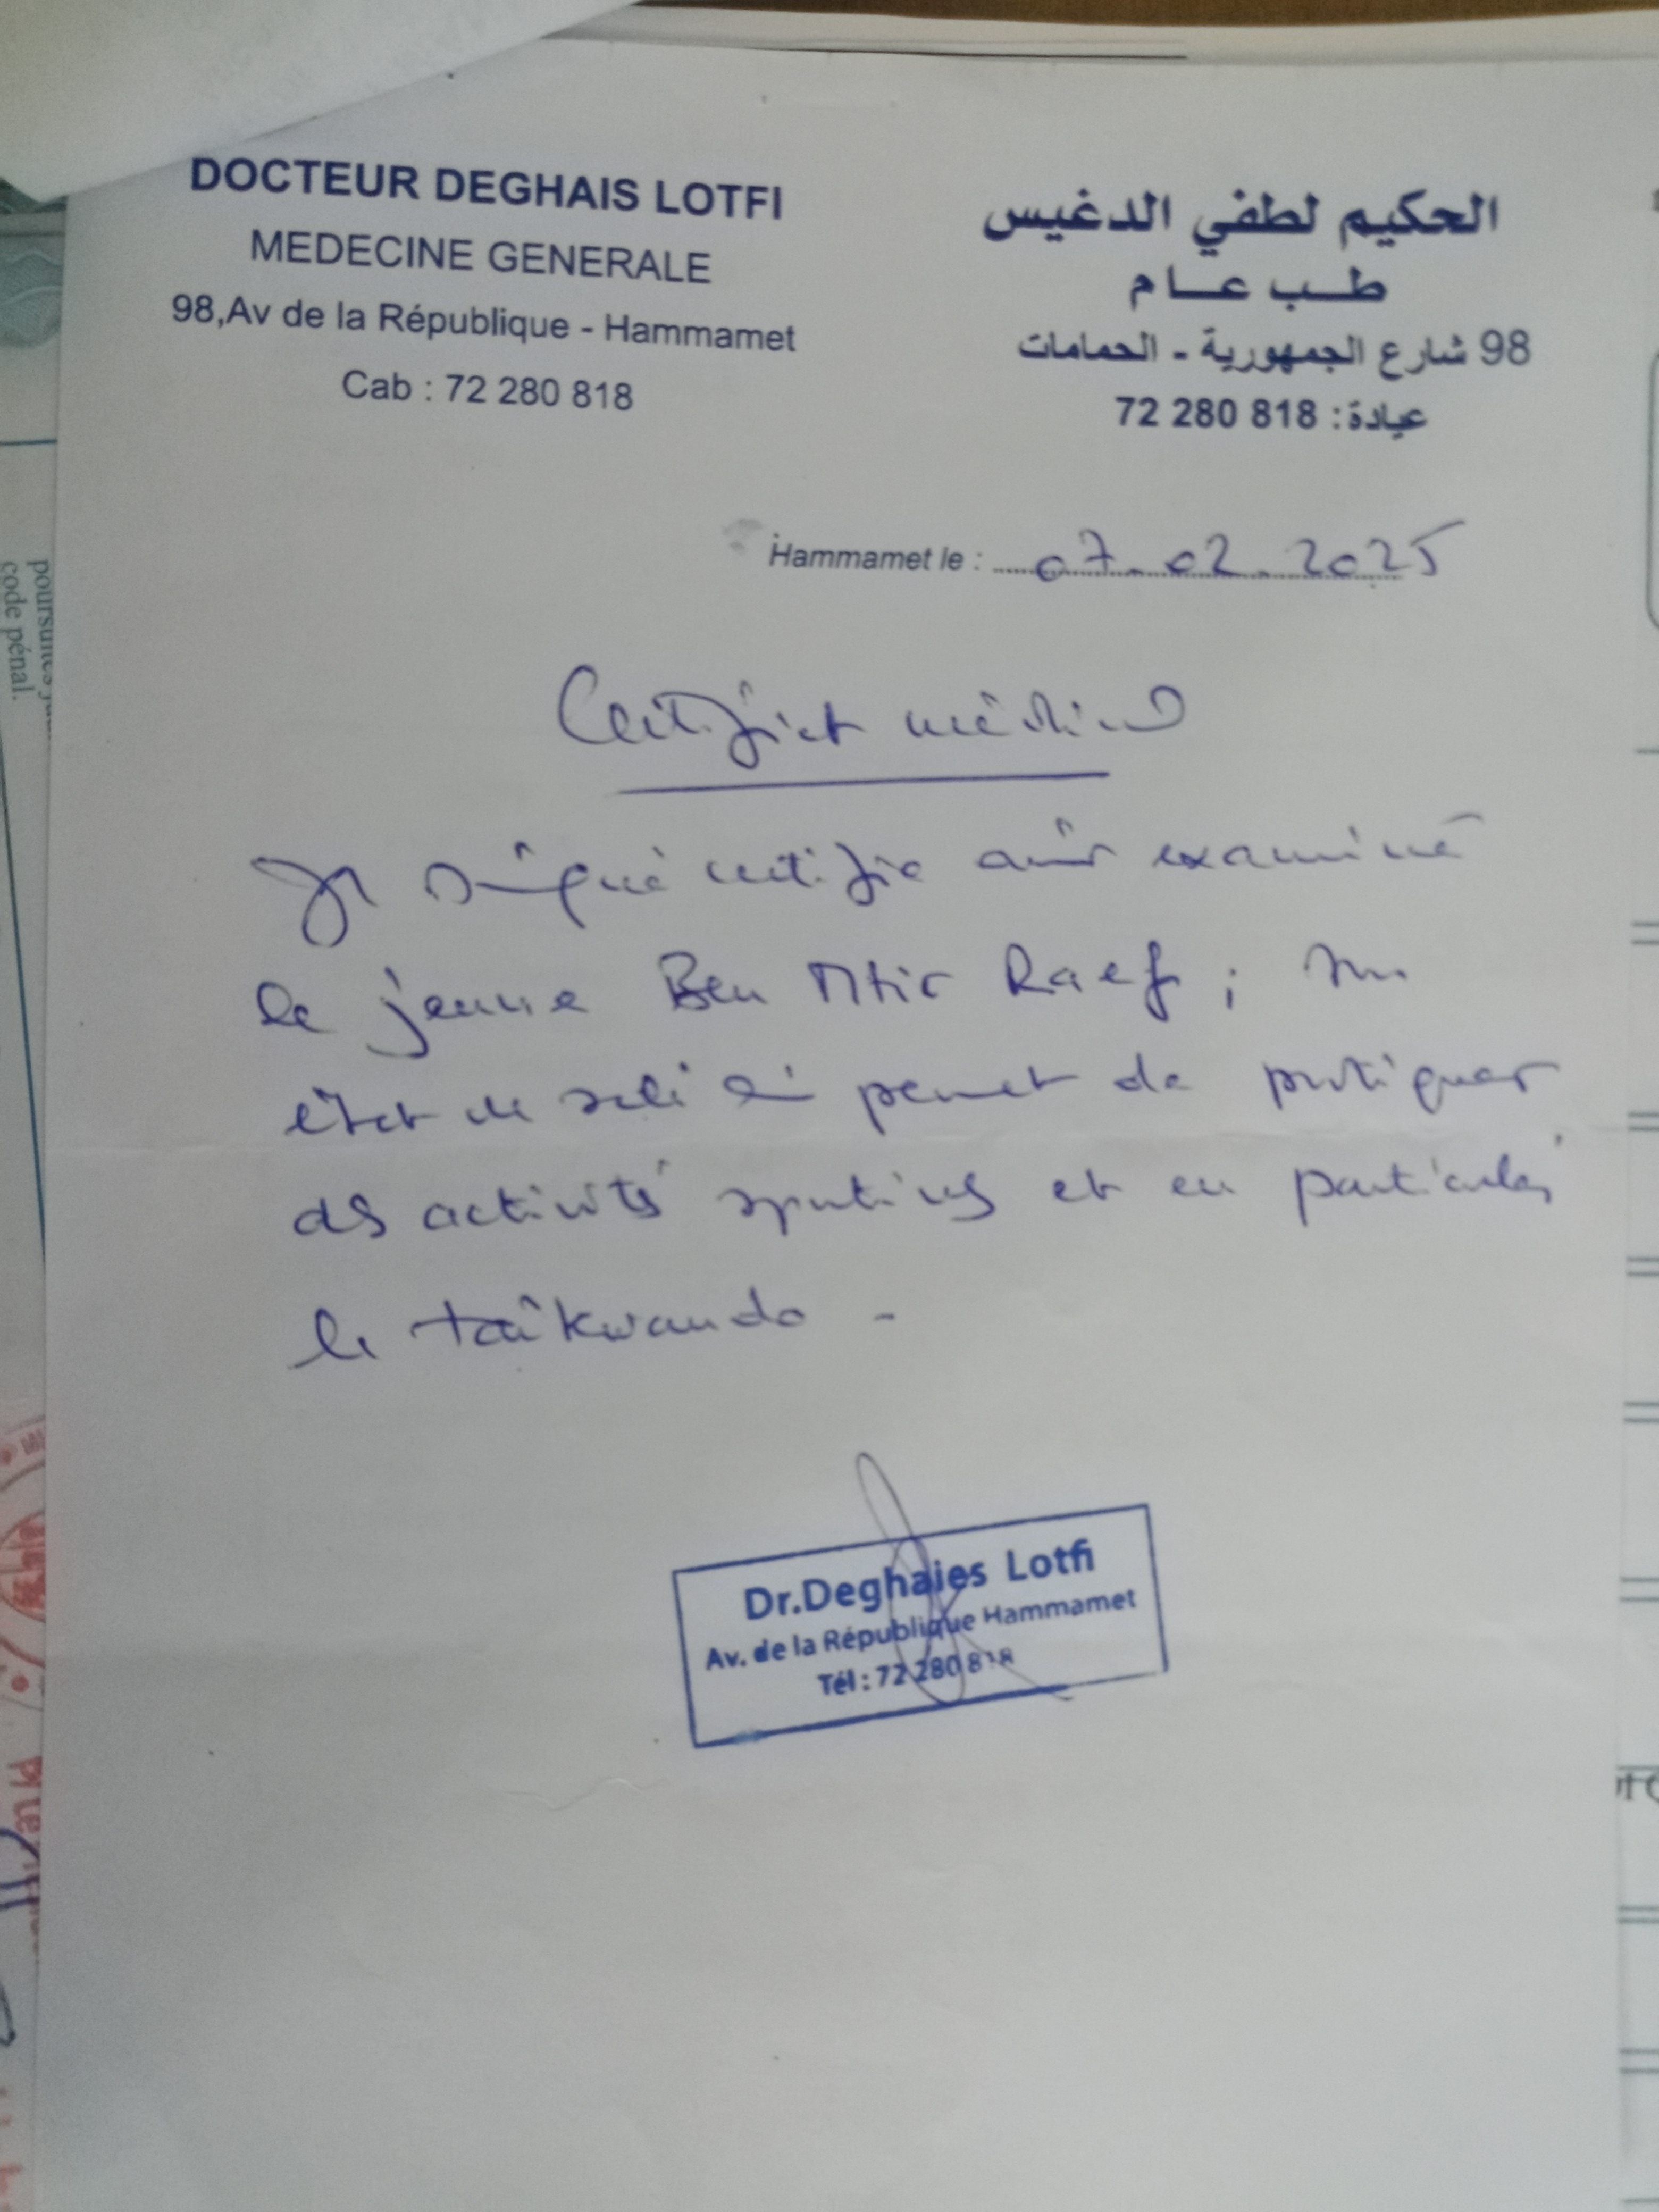 DOCTEUR DEGHAIS LOTFI
MEDECINE GENERALE
98,Av de la République - Hammamet
Cab : 72 280 818
الحكيم لطفي الدغيس
طب عام
98 شارع الجمهورية - الحمامات
عيادة : 72 280 818
Hammamet le : 07.02.2025
Certificat médical
Je soussigné certifie avoir examiné
le jeune Ben Mtir Raef ; son
état de santé lui permet de pratiquer
des activités sportives et en particulier
le taîkwando -
Dr.Deghaies Lotfi
Av. de la République Hammamet
Tél : 72 280 818
code pénal.